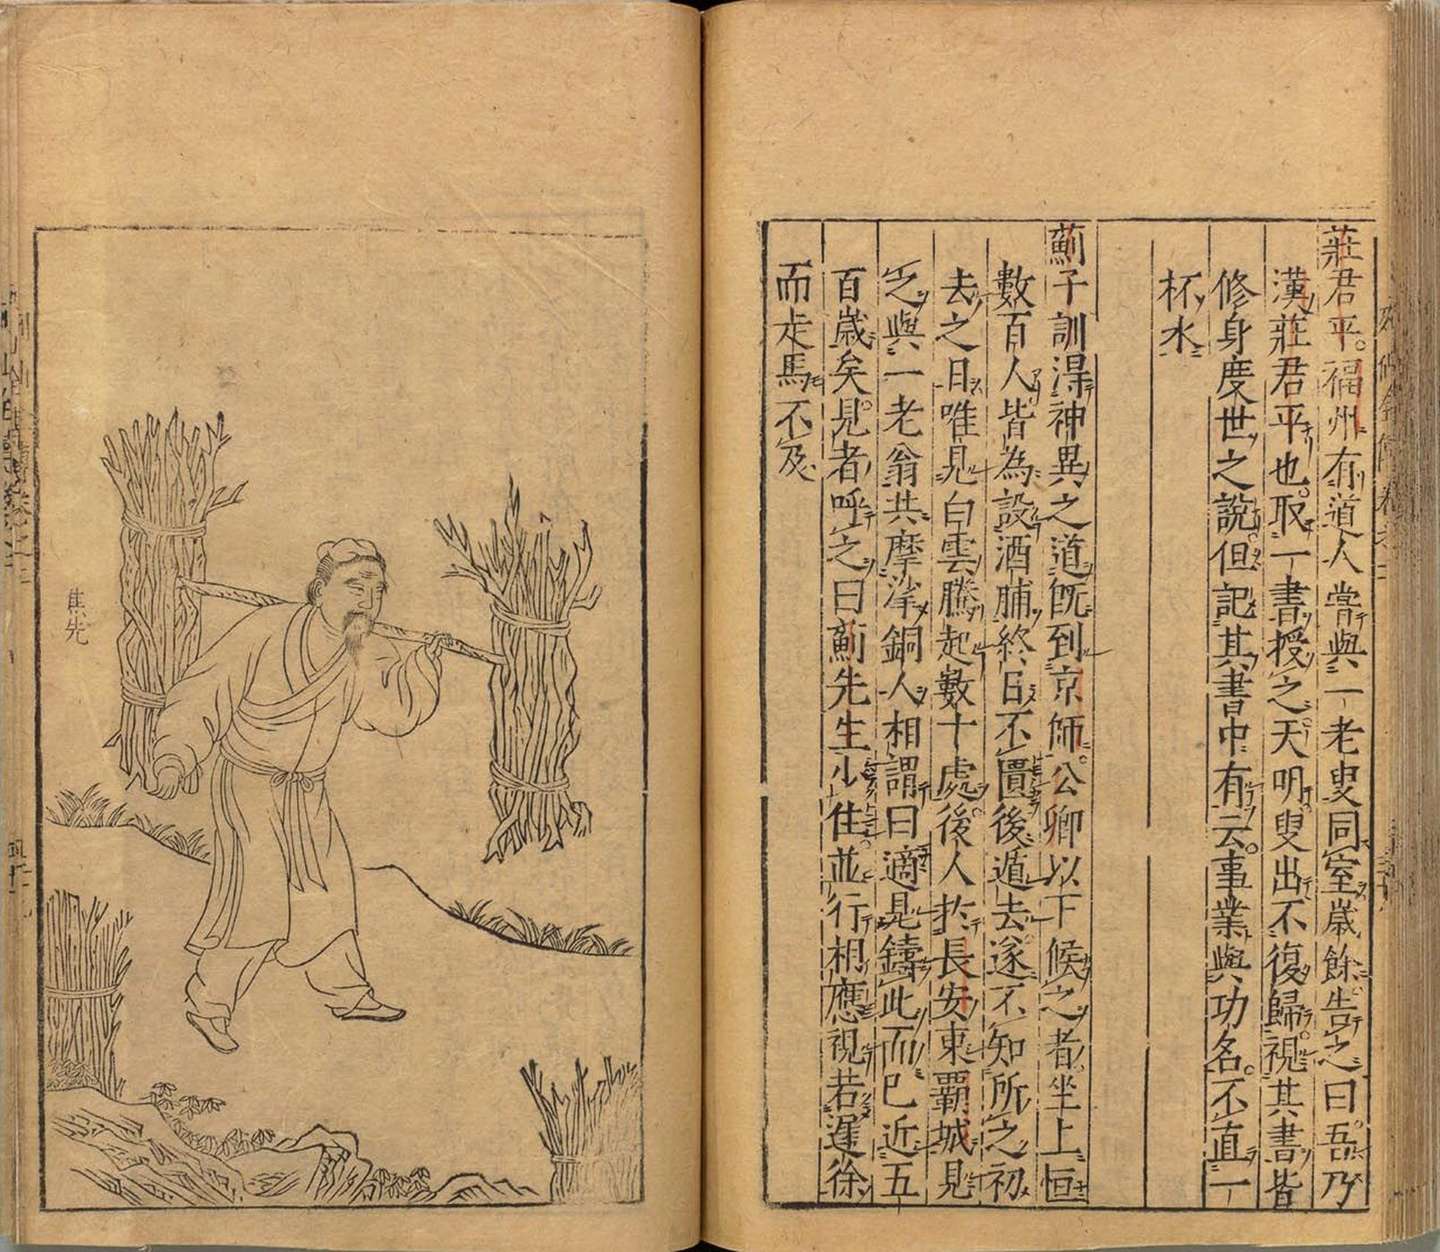 莊君平。福州有道人嘗與一老叟同室歲餘告之曰吾乃
漢莊君平也。取一書授之。天明叟出不復歸。視其書皆
修身度世之說。但記其書中有云。事業與功名。不直一
杯水
薊子訓得神異之道既到京師。公卿以下候之者。坐上恒
數百人皆為設酒脯終日不匱後遁去。遂不知所之初
去之日唯見白雲騰起數十處。後人於長安東霸城見
之與一老翁共摩挲銅人相謂曰適見鑄此而已近五
百歲矣。見者呼之曰薊先生小住並行相應視若遲徐
而走馬不及
焦先